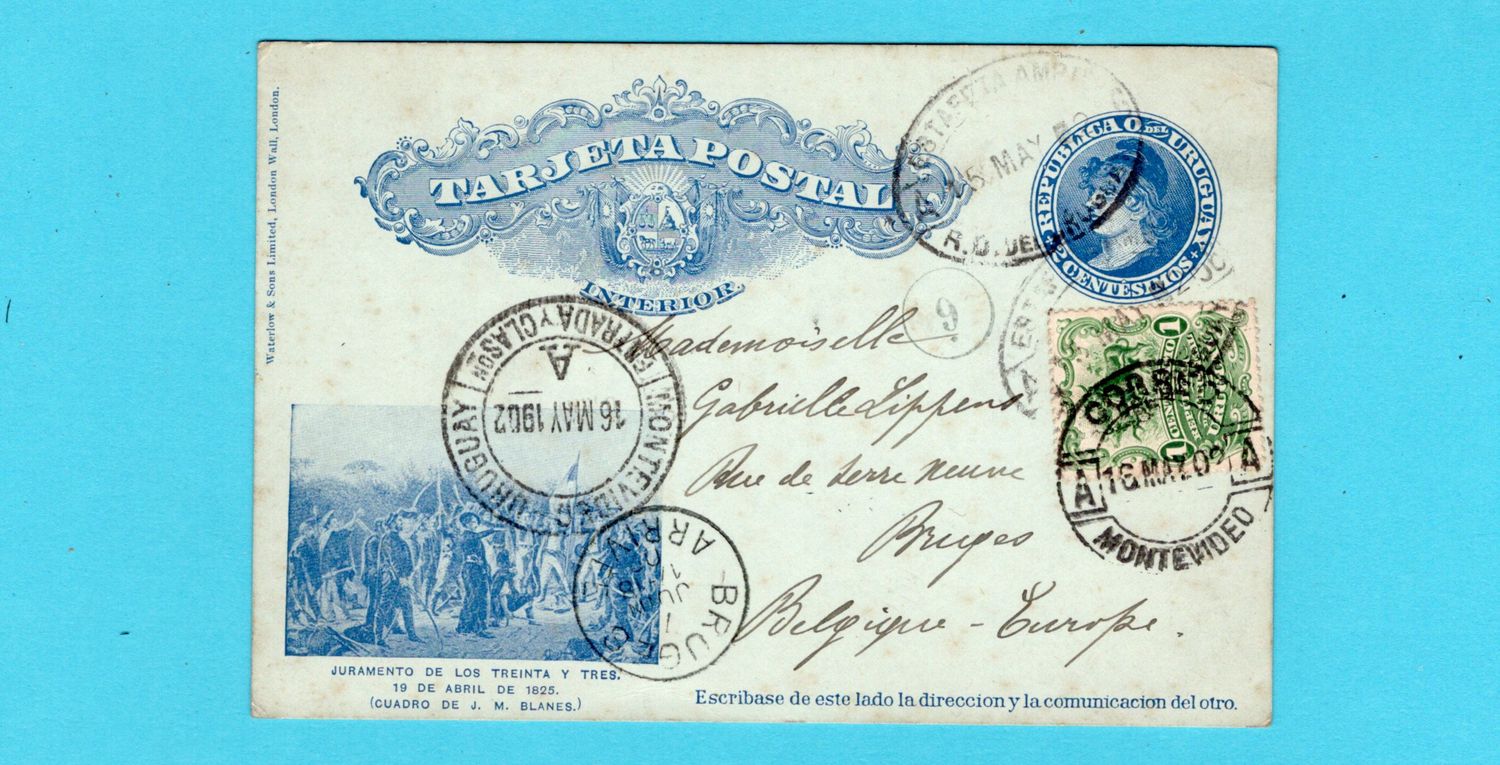 Waterlow & Sons Limited, London Wall, London.
TARJETA POSTAL
INTERIOR.
REPÚBLICA O. DEL URUGUAY
2 CENTÉSIMOS
A 15 MAY
R.D. DEL
9
MONTEVIDEO URUGUAY
ENTRADA Y CLASON
A
16 MAY 1902
1
1
CORREOS
A 16 MAY 02 A
MONTEVIDEO
BRUGES
ARRIV
Mademoiselle
Gabrielle Lippens
Rue de terre neuve
Bruges
Belgique - Europe.
JURAMENTO DE LOS TREINTA Y TRES.
19 DE ABRIL DE 1825.
(CUADRO DE J. M. BLANES.)
Escribase de este lado la direccion y la comunicacion del otro.